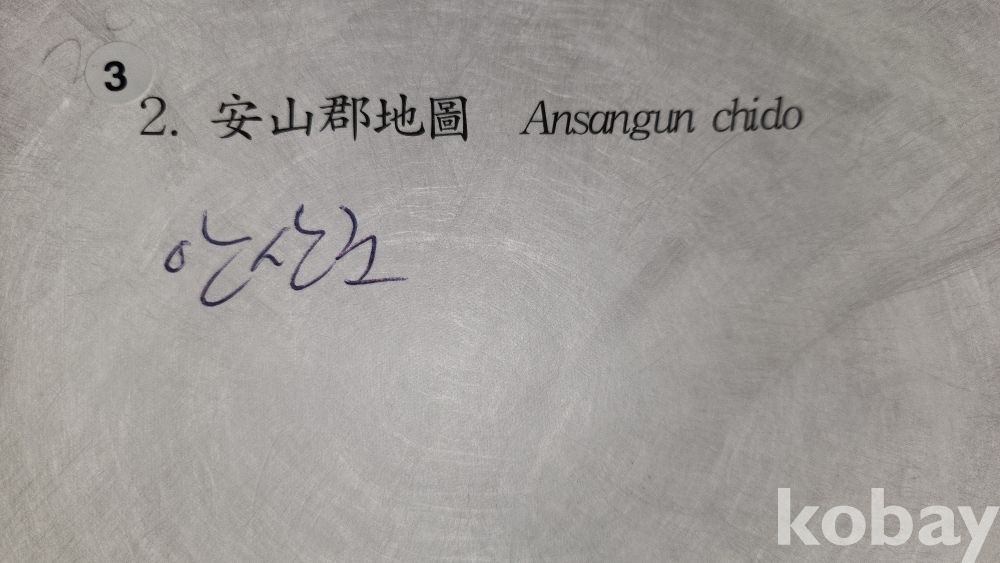 3
2. 安山郡地圖 Ansangun chido
안산
kobay